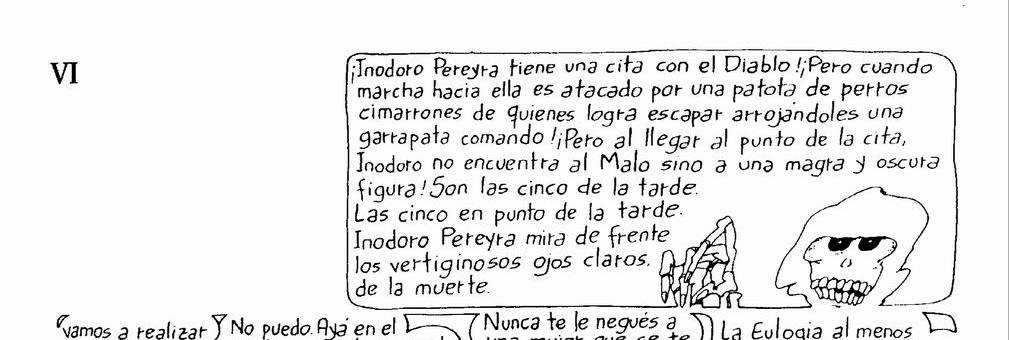 VI
¡Inodoro Pereyra tiene una cita con el Diablo!¡Pero cuando
marcha hacia ella es atacado por una patota de perros
cimarrones de quienes logra escapar arrojándoles una
garrapata comando!¡Pero al llegar al punto de la cita,
Inodoro no encuentra al Malo sino a una magra y oscura
figura! Son las cinco de la tarde.
Las cinco en punto de la tarde.
Inodoro Pereyra mira de frente
los vertiginosos ojos claros,
de la muerte.
vamos a realizar
No puedo. Ayá en el
Nunca te le negués a
una mujer que se te
La Eulogia al menos